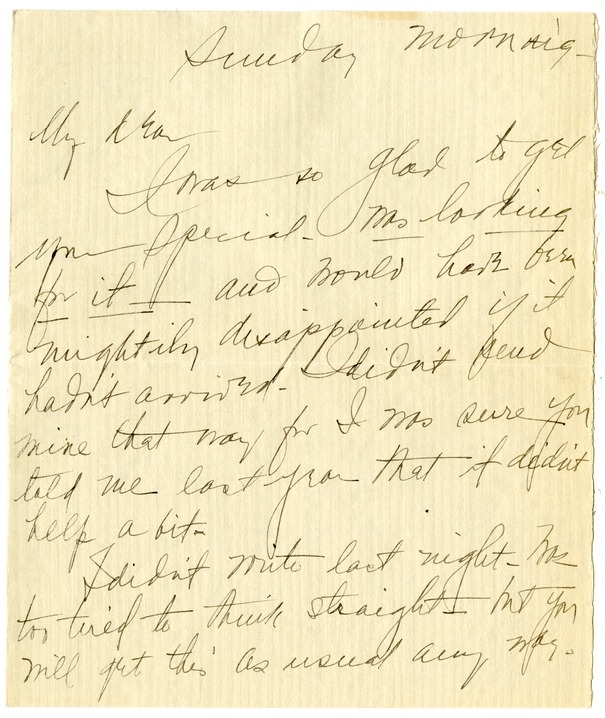 Sunday Morning-
My dear
I was so glad to get
your special- Was looking
for it - and would have been
mightily disappointed if it
hadn't arrived- I didn't send
mine that way for I was sure you
told me last year that it didn't
help a bit-
I didn't write last night- Was
too tired to think straight- but you
will get this as usual any way-